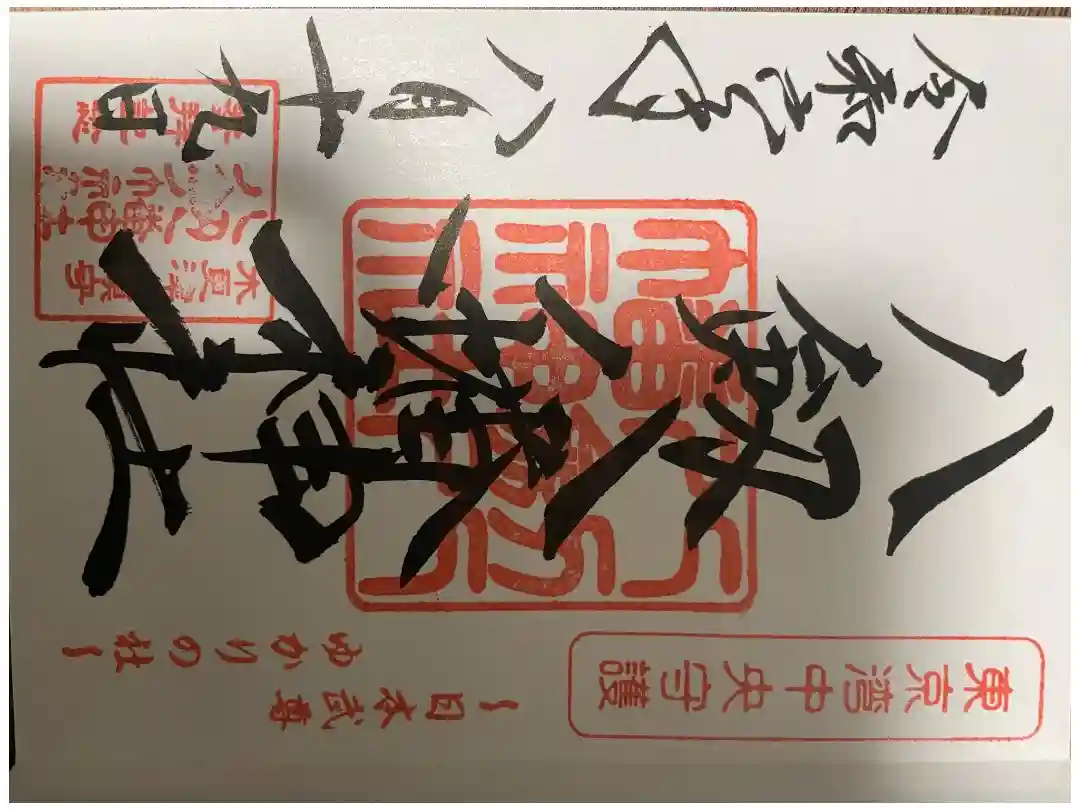 東京湾中央守護
～日本武尊
ゆかりの社～
八剱八幡神社
木更津鎮守
八剱八幡神社
令和 年八月十九日